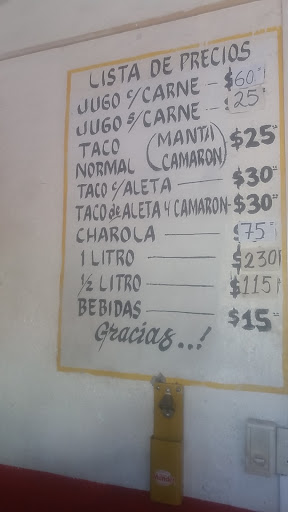 LISTA DE PRECIOS
JUGO c/CARNE - $60
JUGO s/CARNE - $25
TACO NORMAL (MANTA CAMARON) $25
TACO c/ALETA $30
TACO de ALETA Y CAMARON - $30
CHAROLA $75
1 LITRO $230
1/2 LITRO $115
BEBIDAS $15
Gracias..!